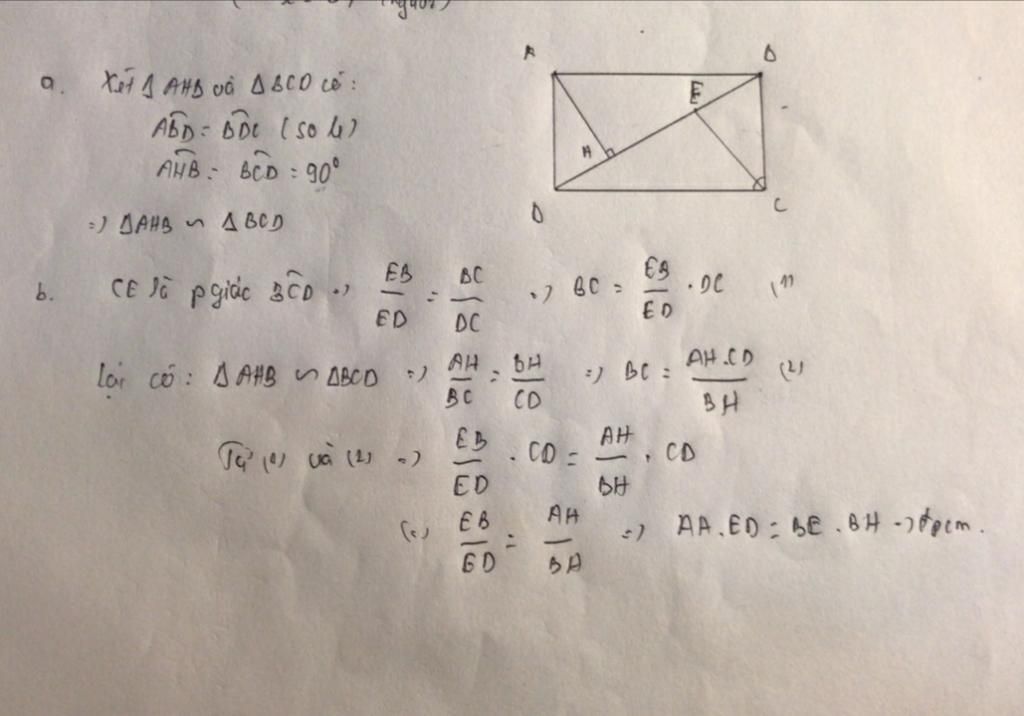 A B
a. Xét Δ AHB và Δ BCD có:
E
ABD = BDC (so le)
H
AHB = BCD = 90°
D C
=> ΔAHB ∽ Δ BCD
b. CE là p giác BCD => EB/ED = BC/DC => BC = EB/ED . DC (1)
lại có: Δ AHB ∽ ΔBCD => AH/BC = BH/CD => BC = AH.CD/BH (2)
Từ (1) và (2) => EB/ED . CD = AH/BH . CD
(=) EB/ED = AH/BH => AH.ED = BE.BH -> đpcm.